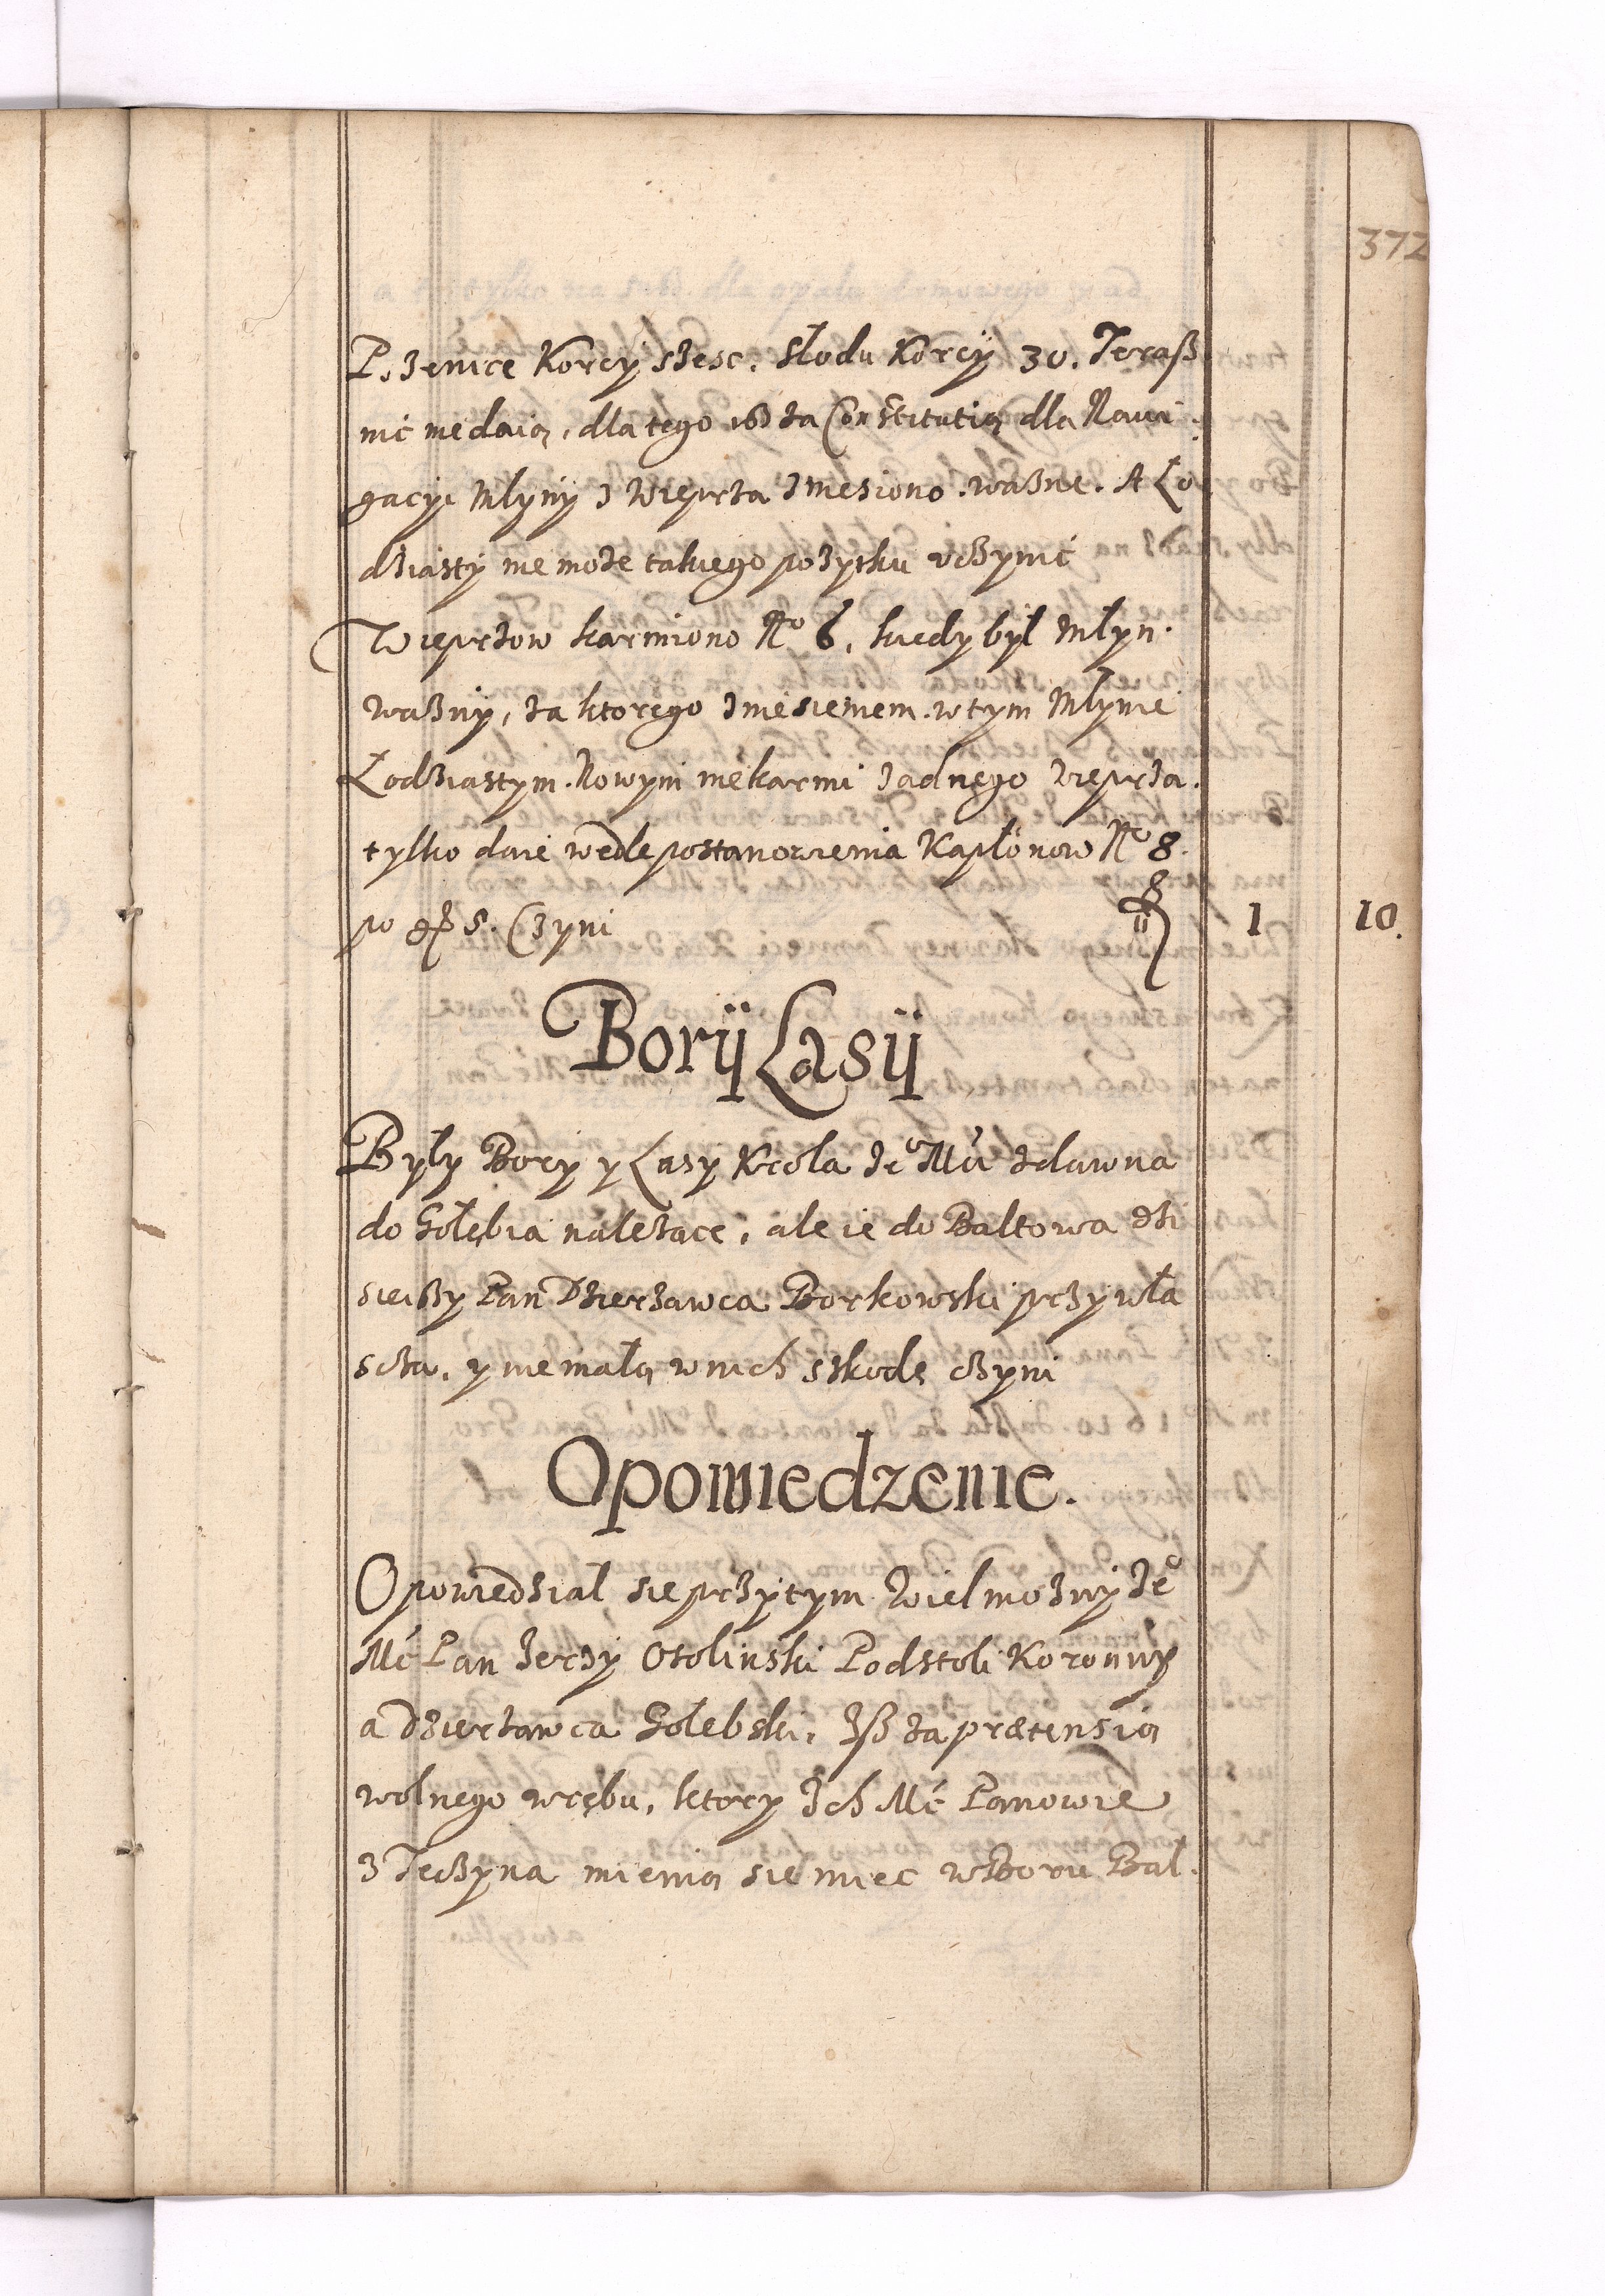 372
Pszenice Korcy szesc. Słodu Korcy 30. Teraß
nic niedaią, dla tego iż za Constitutią dla Nawi
gacyi Mlyny z Wieprza zniesiono wazne. A Ło
dziasty nie może takiego pożytku vczynić
Wieprzow karmiono No 6. kiedy był Młyn
wazny, za ktorego zniesieniem w tym Mlynie
Łodziastym Nowym niekarmi zadnego wieprza.
tylko daie wedle postanowienia Kapłonow No 8.
po gß 5. Czyni fl 1 10.
Borÿ Lasÿ
Były Bory y Lasy Krola Jeo Mći zdawna
do Gołębia nalezące, ale ie do Baltowa dzi
sieiszy Pan Dzierzawca Borkowski przywła
scza. y niemałą w nich szkodę czyni
Opowiedzenie.
Opowiedział sie przytym Wielmożny Jeo
Mć Pan Jerzy Osolinski Podstoli Koronny
a Dzierzawca Gołębski, Iß za prætensią
wolnego wrębu, ktory Ich Mć Panowie
z Teczyna mienią sie miec w Boru Bal.